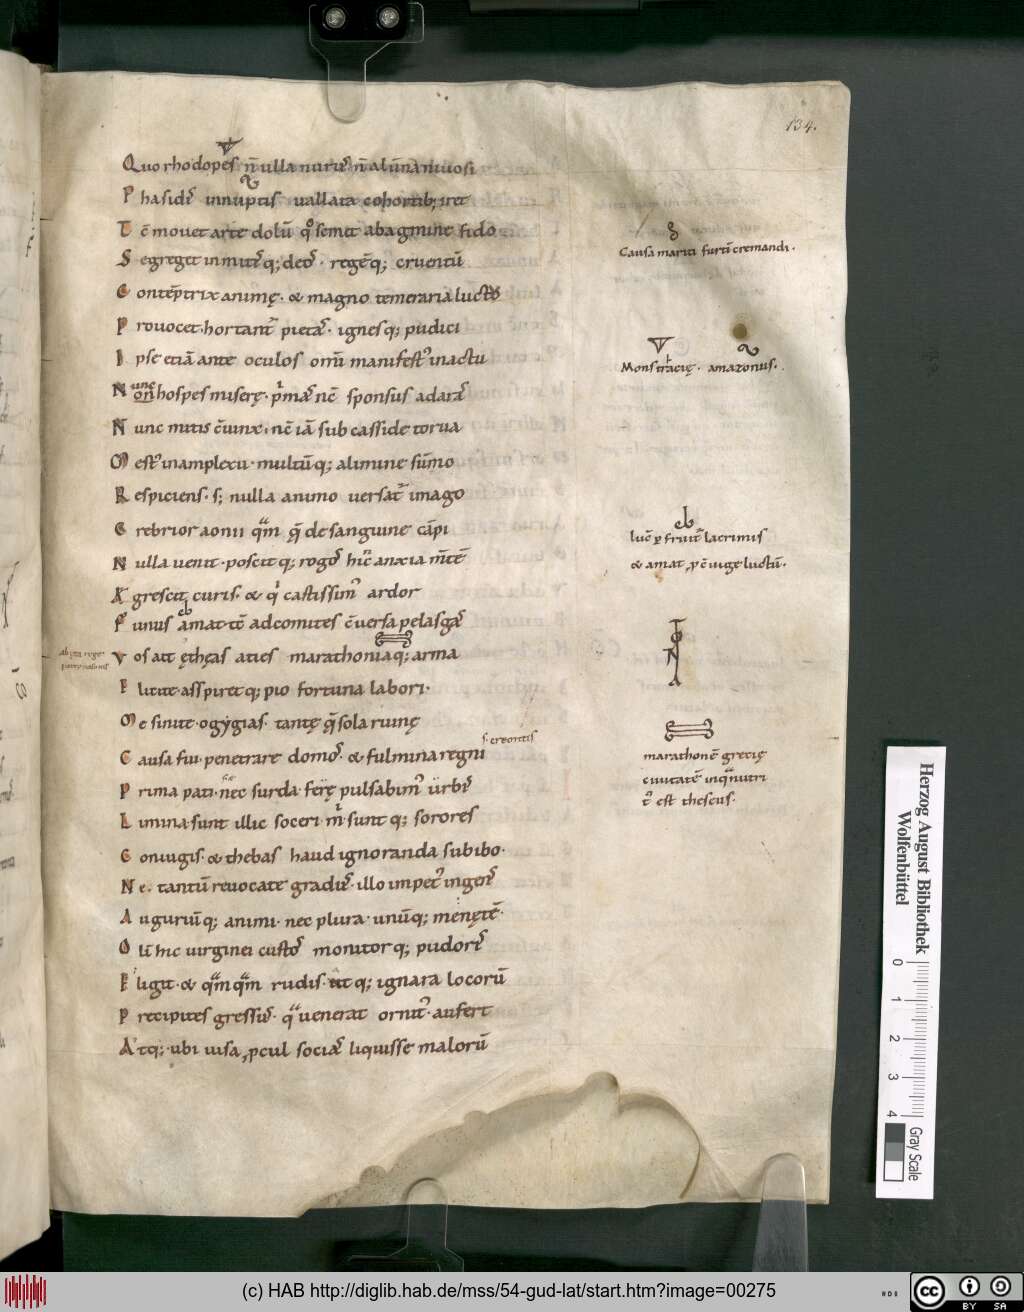 134.
Quo rhodopes n̄ ulla nurus n̄ alūna niuosi
Phasidis innuptis uallata cohortib; iret
Tē mouet arte dolū qͦ semet ab agmine fido
Segreget inmitesq; deos · regēq; cruentū
Contēptrix animę · & magno temeraria luctus
Prouocet · hortantʳ pietas · ignesq; pudici
Ipse etiā ante oculos om̄i manifestꝰ in actu
Nunc hospes miserę · pⁱmas nc̄ sponsus ad aras
Nunc mitis c̄iunx · nc̄ iā sub casside torua
Mestꝰ in amplexu · multūq; a limine sūmo
Respiciens · s; nulla animo uersatʳ imago
Crebrior aonii quam quę de sanguine cāpi
Nulla uenit · poscitq; rogos hīc anxia m̄tē
Ægrescit curis · & qⁱ castissimꝰ ardor
Funus amat · tc̄ ad comites c̄uersa pelasgas
Vos ait ętheas acies marathoniaq; arma
Elicite · asspiretq; pio fortuna labori ·
Me sinite · ogẏgias · tantę quę sola ruinę
Causa fui · penetrare domos · & fulmina regni
s. creontis
Prima pati · nec surda ferę pulsabimꝰ urbis
Limina · sunt illic soceri · m sunt q; sorores
Coniugis · & thebas haud ignoranda subibo ·
Ne · tantū reuocate gradus · illo impetꝰ ingens
Auguriūq; animi · nec plura · unūq; menętē ·
Olī hic uirginei custos monitorq; pudoris
Eligit · & quamquam rudis · atq; ignara locorū
Precipites gressus · qua uenerat ornitꝰ · aufert
Atq; · ubi uisa ꝓcul socias liquisse malorū
Causa mariti furtī cremandi ·
Mons tracię · amazonus ·
lucē ꝑfruitʳ lacrimis
& amat ꝓ c̄iuge luctum ·
marathonē grecię
ciuitatē in qua nutri
tꝰ est theseus ·
Herzog August Bibliothek
Wolfenbüttel
0 1 2 3 4
Gray Scale
(c) HAB http://diglib.hab.de/mss/54-gud-lat/start.htm?image=00275
cc BY SA